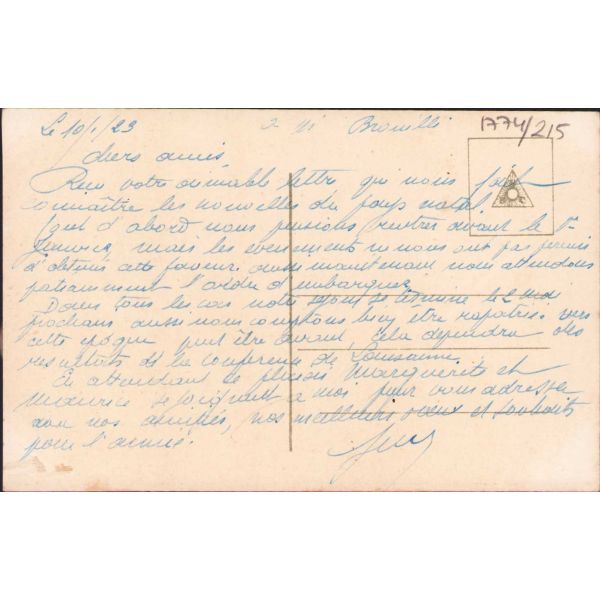 Le 10/1/23 Brouilli 1774/215
chers amis,
Reçu votre aimable lettre qui nous fait
connaître les nouvelles du pays natal
que d'abord nous pensions rentrer avant le 1er
Janvier mais les evenements ne nous ont pas permis
d'obtenir cette faveur aussi maintenant nous attendons
patiemment l'ordre d'embarquer
Dans tous les cas notre séjour se termine le mai
prochain aussi nous comptons bien être rapatriés vers
cette époque peut être avant, cela dependra des
resultats de la conference de Lausanne.
En attendant ce plaisir Marguerite et
Maurice se joignent a moi pour vous adresser
nos amitiés, nos meilleurs voeux et souhaits
pour l'année.